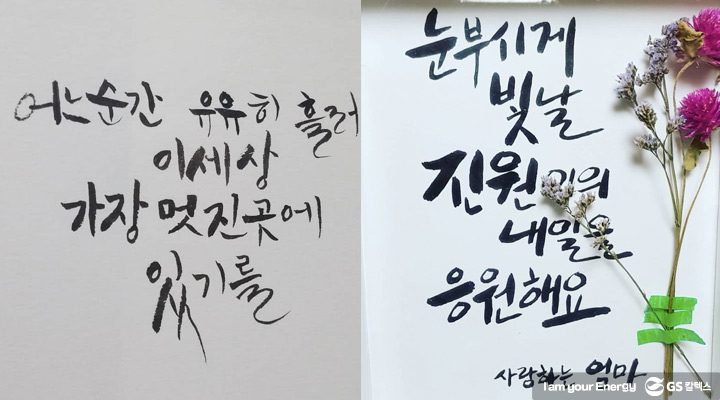 어느순간 유유히 흘러
이세상
가장 멋진곳에
있기를
눈부시게
빛날
진원이의
내일을
응원해요
사람하는 엄마
I am your Energy GS칼텍스